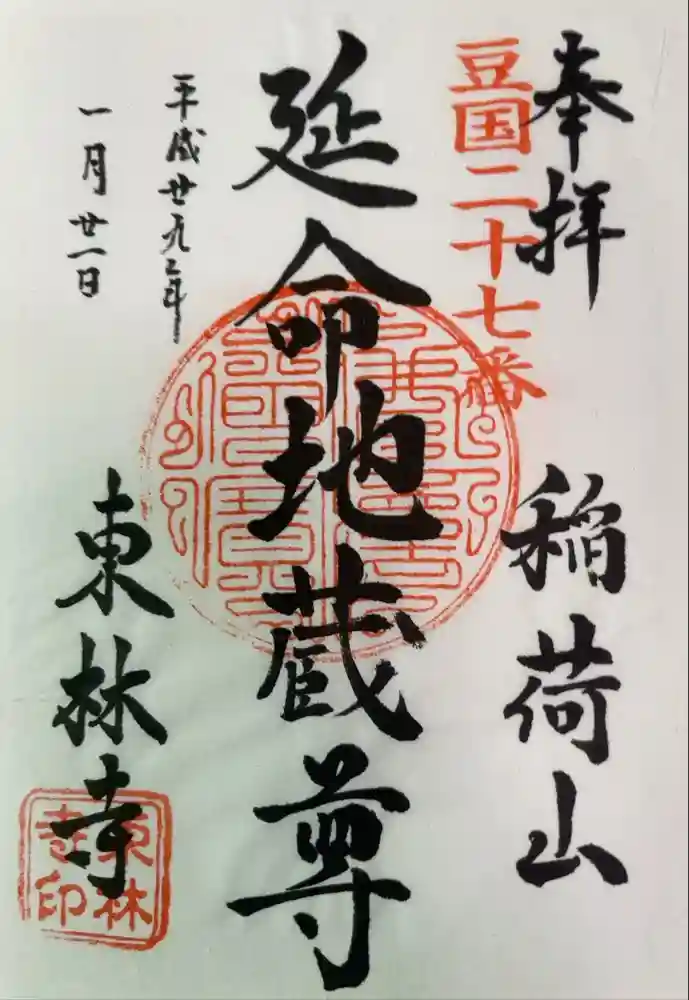 奉拝
稲荷山
豆国二十七番
延命地蔵尊
平成廿九年
一月廿一日
東林寺
東林
寺印